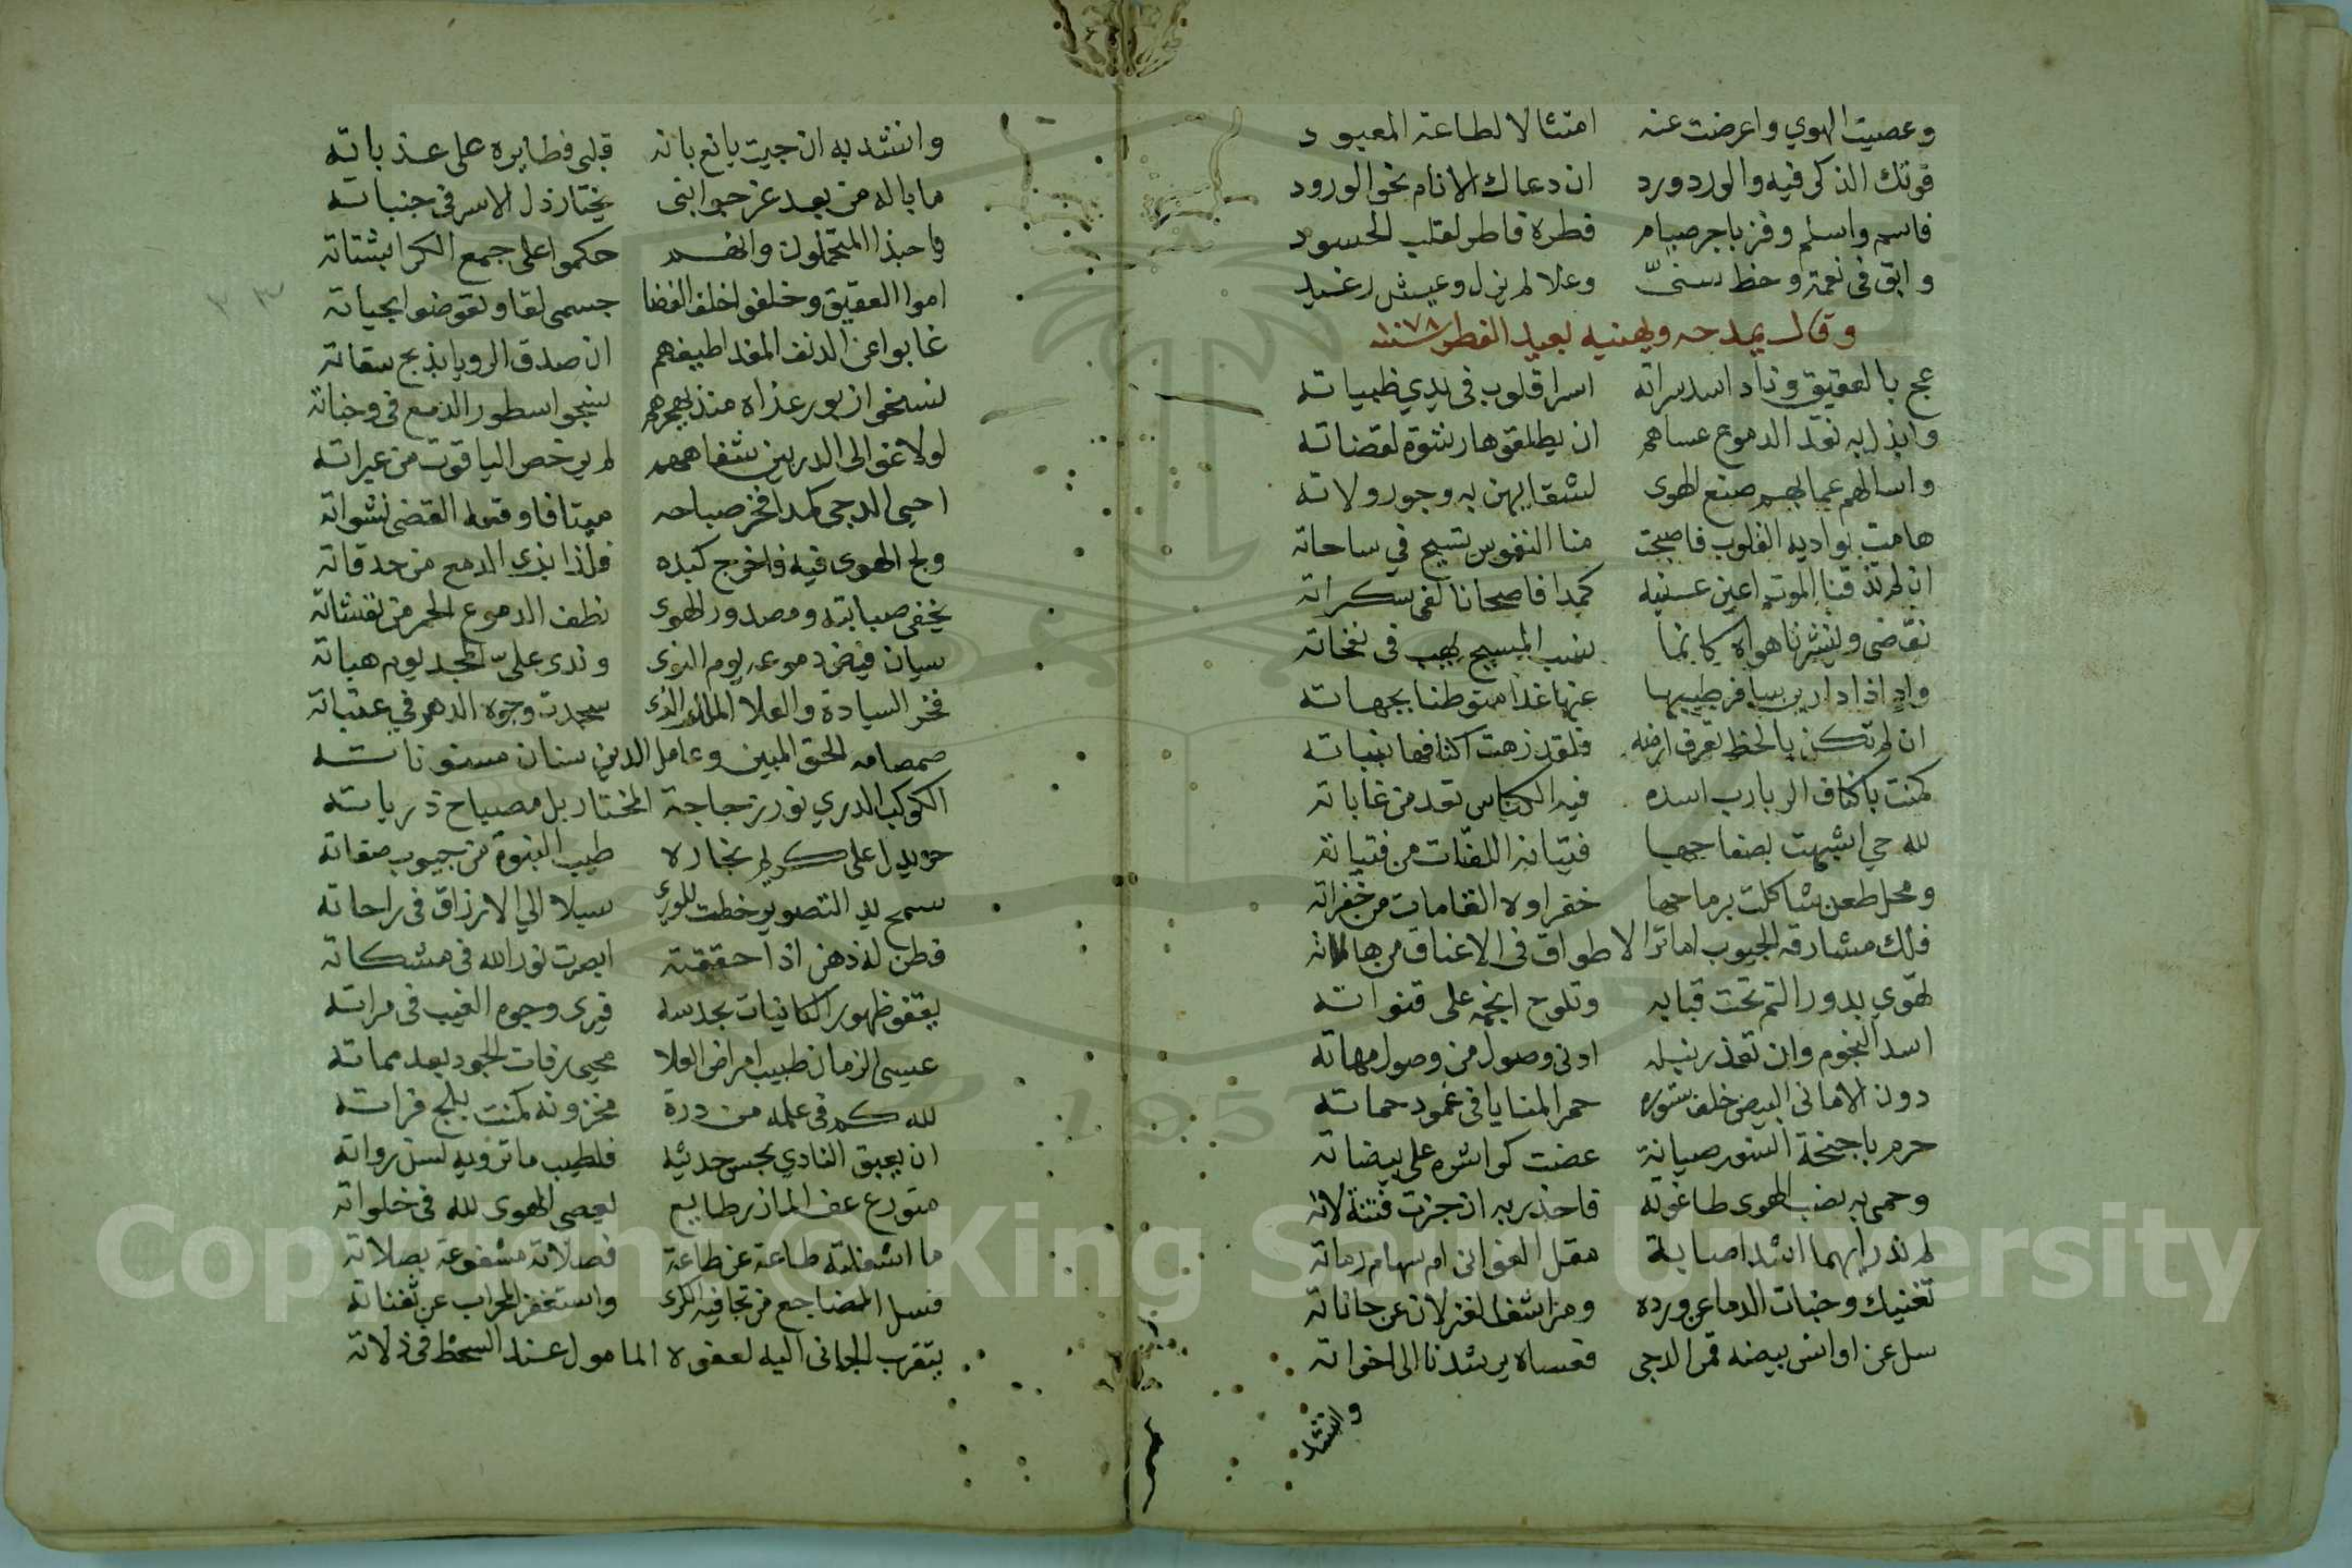 وعصيت الهوي واعرضت عنه امتثالا لطاعة المعبود
قوتك الذكر فيه والورد ورد ان دعاك الانام نحو الورود
فاسم واسلم وفز باجر صيام فطره فاطر لقلب الحسود
وابق في نعمة وحظ سنيّ وعلا لم يزل وعيش رغيد
وقال يمدحه ويهنيه بعيد الفطر سنة ١٠٧٨
عج بالعقيق وناد اسد سراته اسرا قلوب في يدي ظبياته
وابذل به نقد الدموع عساهم ان يطلقوها رشوة لقضاته
واسالهم عما بهم صنع الهوى لشقايهن به وجور ولاته
هامت بواديه القلوب فاصبحت منا النفوس تسيح في ساحاته
ان لم تذقنا الموت اعين عينه كمدا فاصحانا لفي سكراته
نقضى وينشرنا هواه كانما نفس المسيح يهب في نفحاته
واد اذا دارين سافر طيبها عنها غدا متوطنا بجهاته
ان لم تكن بالحظ تعرف ارضه فلقد زهت اكنافها بنباته
كمنت باكناف الربارب اسده فيه الكناس تعد من غاباته
لله حي اشبهت بصفاحها فتيانه اللفتات من فتياته
ومحل طعن شاكلت برماحها خفراوه القامات من خفراته
فلك مشارقه الجيوب اما ترا الاطواق في الاعناق من هالاته
تهوي بدور التم تحت قبابه وتلوح انجمه على قنواته
اسد النجوم وان تعذر نيله ادنى وصول من وصول مهاته
دون الاماني البيض خلف ستوره حمر المنايا في غمود حماته
حرم باجنحة النسور صيانة عضت كواشره على بيضاته
وحمى به نصب الهوى طاغوته فاحذر به ان جزت فتنة لاته
لم ندر ايهما اشد اصابة مقل الغواني ام سهام رماته
تغنيك وجنات الدما عن ورده ومراشف الغزلان عن حاناته
سل عن اوانس بيضه قمر الدجى فعساه يرشدنا الى اخواته
وانشد
وانشد به ان جيت يانع بانه قلبي فطايره على عذباته
ما باله من بعد عز جوانبي يختار ذل الاسر في جنباته
يا حبذا المتحملون وانهم حكموا على جمع الكرا بشتاته
اموا العقيق وخلفوا خلف الغضا جسمى لقا وتقوضوا بحياته
غابوا عن الدنف المفدا طيفهم ان صدق الرويا بذبح سقاته
نسخوا زبور عزاه منذ بهجرهم نسجوا سطور الدمع في وجناته
لولا غوالى الدر بين شفاههم لم يرخص الياقوت من عبراته
احيى الدجى كمدا فخر صباحه ميتا فاوقعه القضى نشواته
ولج الهوى فيه فاخرج كبده فلذا بذرى الدمع من حدقاته
يخفى صبابته ومصدور الهوى نطف الدموع الحمر من نفثاته
سيان فيض دموعه يوم النوى وندى على المجد يوم هباته
فخر السيادة والعلا الملك الذى سجدت وجوه الدهر في عتباته
صمصامه الحق المبين وعامل الدين سنان مسنوناته
الكوكب الدري نور زجاجة المختار بل مصباح ذرياته
حر يدل على كريم نجاره طيب النبوة من جيوب صفاته
سمح يد التصوير خطت للورى سبلا الي الارزاق في راحاته
فطن له ذهن اذا حققته ابصرت نور الله في مشكاته
يقفو ظهور الكانيات بحدسه فيرى وجوه الغيب في مراته
عيسى الزمان طبيب امراض العلا محيى رفات الجود بعد مماته
لله كم في علمه من درة مخزونه كمنت بلج فراته
ان يعبق النادي بحسن حديثه فلطيب ما ترويه لسن رواته
متورع عف المازر طايع يعصى الهوى لله في خلواته
ما اشغلته طاعة عن طاعة فصلاته مشفوعة بصلاته
فسل المضاجع من تجافيه الكرى واستخبر المحراب عن ثفناته
يتقرب الجاني اليه لعفوه المامول عند السخط في زلاته